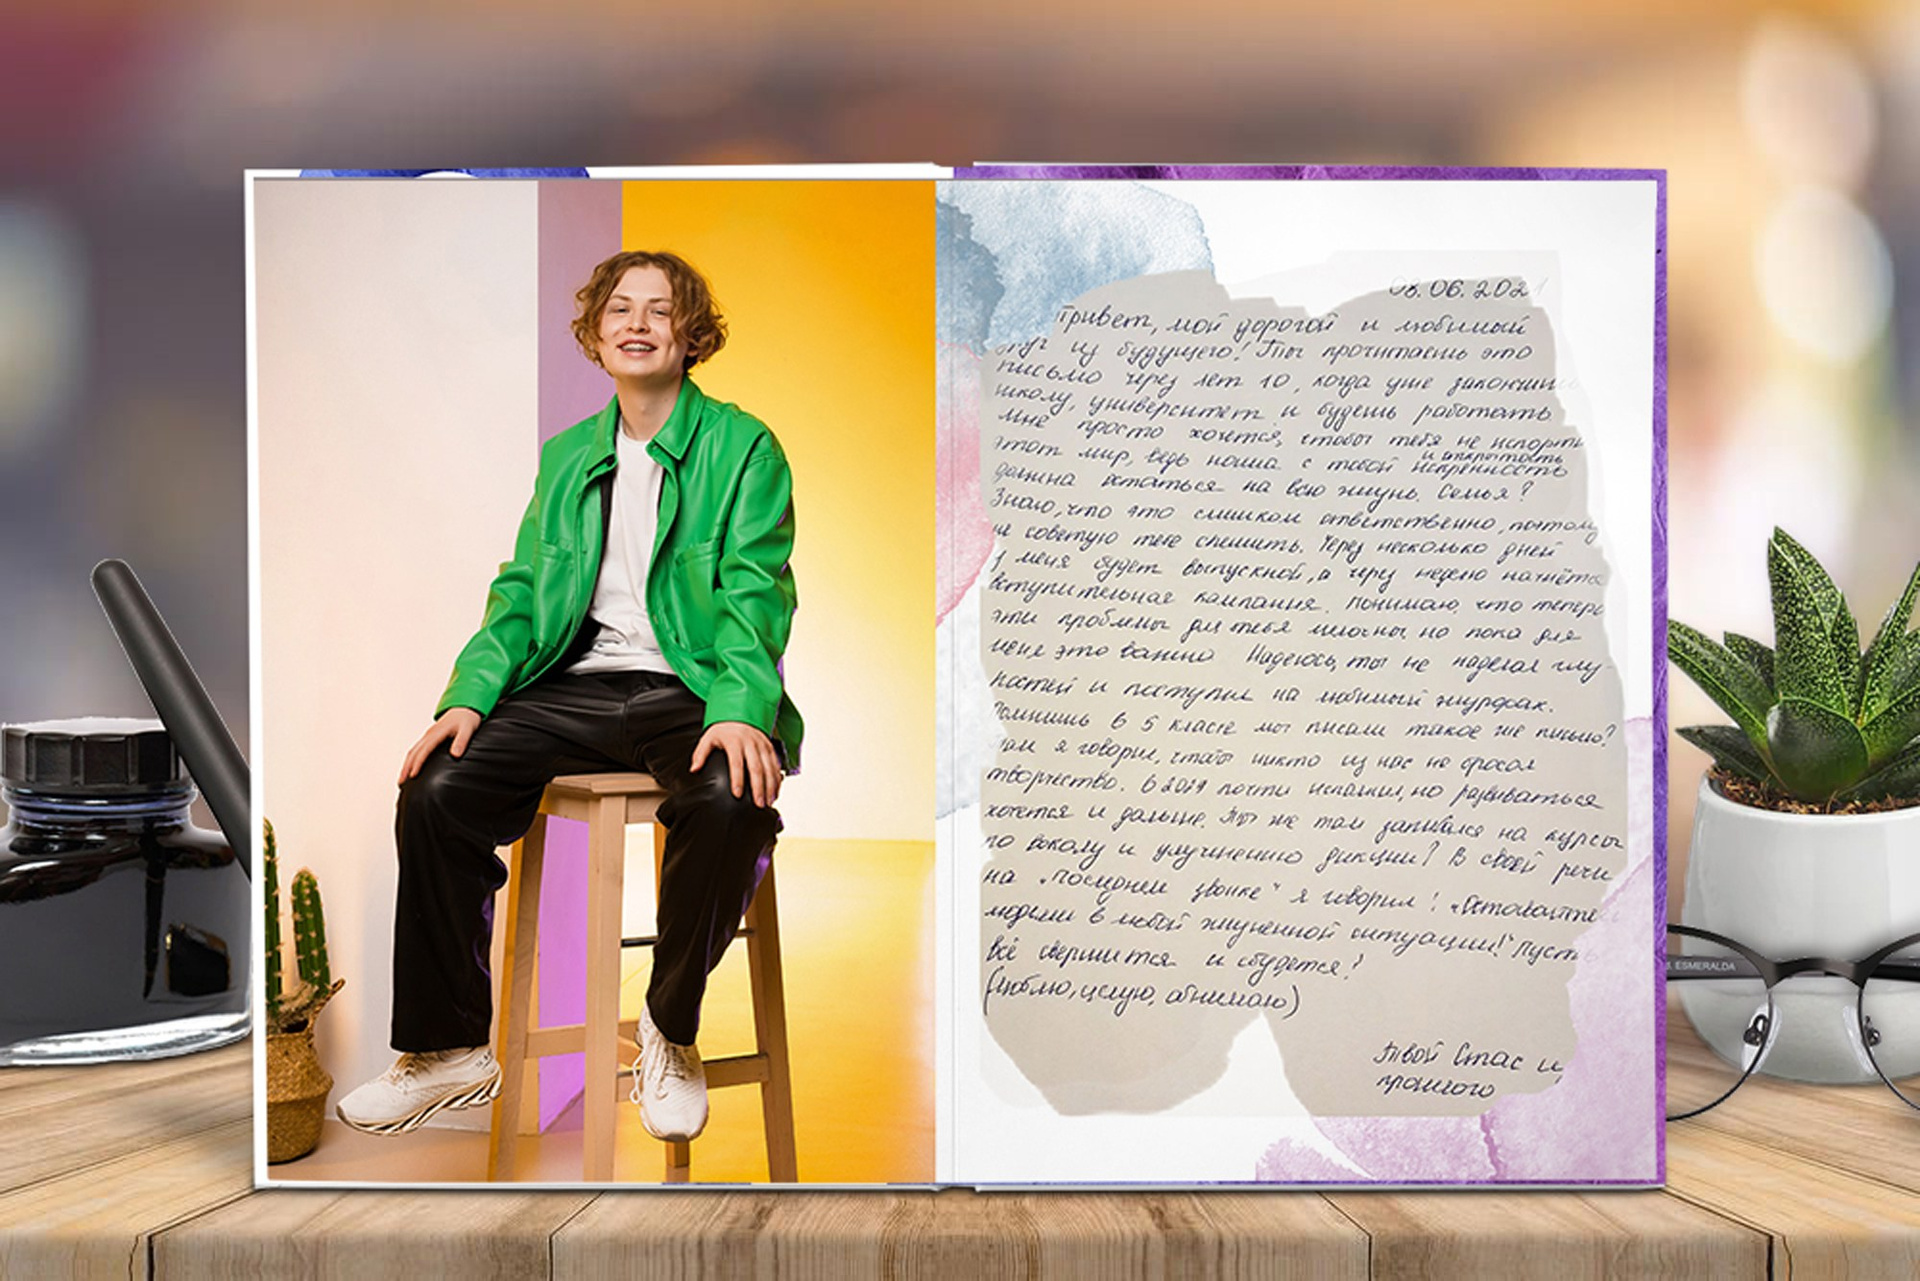 08.06.2021
Привет, мой дорогой и любимый
друг из будущего! Ты прочитаешь это
письмо через лет 10, когда уже закончишь
школу, университет и будешь работать.
Мне просто хочется, чтобы тебя не испортил
этот мир, ведь наша с тобой искренность
и открытость
должна остаться на всю жизнь. Семья?
Знаю, что это слишком ответственно, поэтому
не советую тебе спешить. Через несколько дней
у меня будет выпускной, а через неделю начнётся
вступительная кампания. Понимаю, что теперь
эти проблемы для тебя мелочны, но пока для
меня это важно. Надеюсь, ты не наделал глу-
постей и поступил на любимый журфак.
Помнишь в 5 классе мы писали такое же письмо?
Там я говорил, чтобы никто из нас не бросал
творчество. В 2021 почти исполнил, но развиваться
хочется и дальше. Ты же там записался на курсы
по вокалу и улучшению дикции? В своей речи
на "Последнем звонке" я говорил: «Оставайтесь
людьми в любой жизненной ситуации!" Пусть
всё свершится и сбудется!
(Люблю, целую, обнимаю)
Твой Стас из
прошлого
B. ESMERALDA